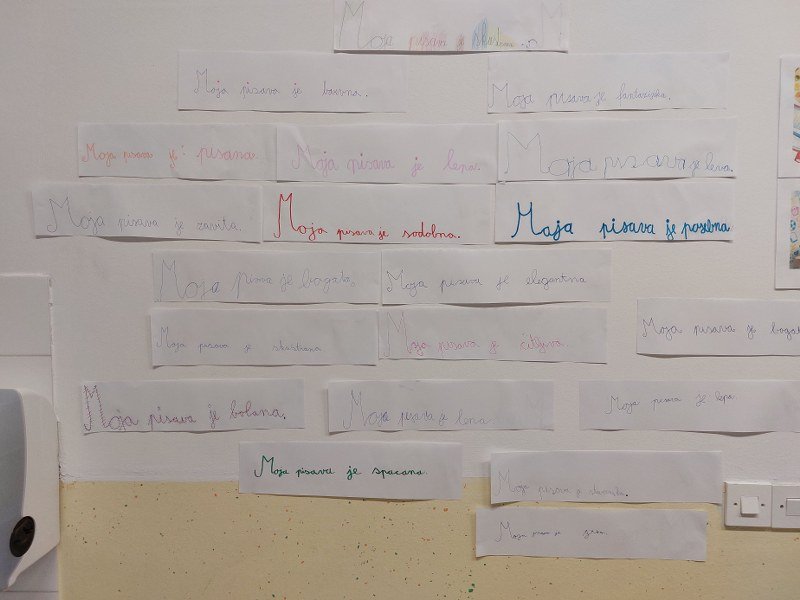 Moja pisava je
Moja pisava je barvna.
Moja pisava je fantazijska.
Moja pisava je pisana.
Moja pisava je lepa.
Moja pisava je lena.
Moja pisava je zavita.
Moja pisava je sodobna.
Moja pisava je posebna
Moja pisava je bogata.
Moja pisava je elegantna
Moja pisava je
Moja pisava je čitljiva.
Moja pisava je
Moja pisava je bolana.
Moja pisava je lena.
Moja pisava je lepa.
Moja pisava je spacana.
Moja pisava je
Moja pisava je